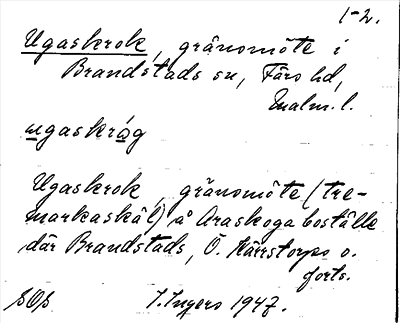 1-2.
Ugaskrok, gränsmöte i
Brandstads sn, Färs hd,
Malm. l.
ugaskråg
Ugaskrok, gränsmöte (tre-
markaskäl) å Araskoga boställe
där Brandstads, Ö. Kärrstorps o.
forts.
I. Ingers 1947.